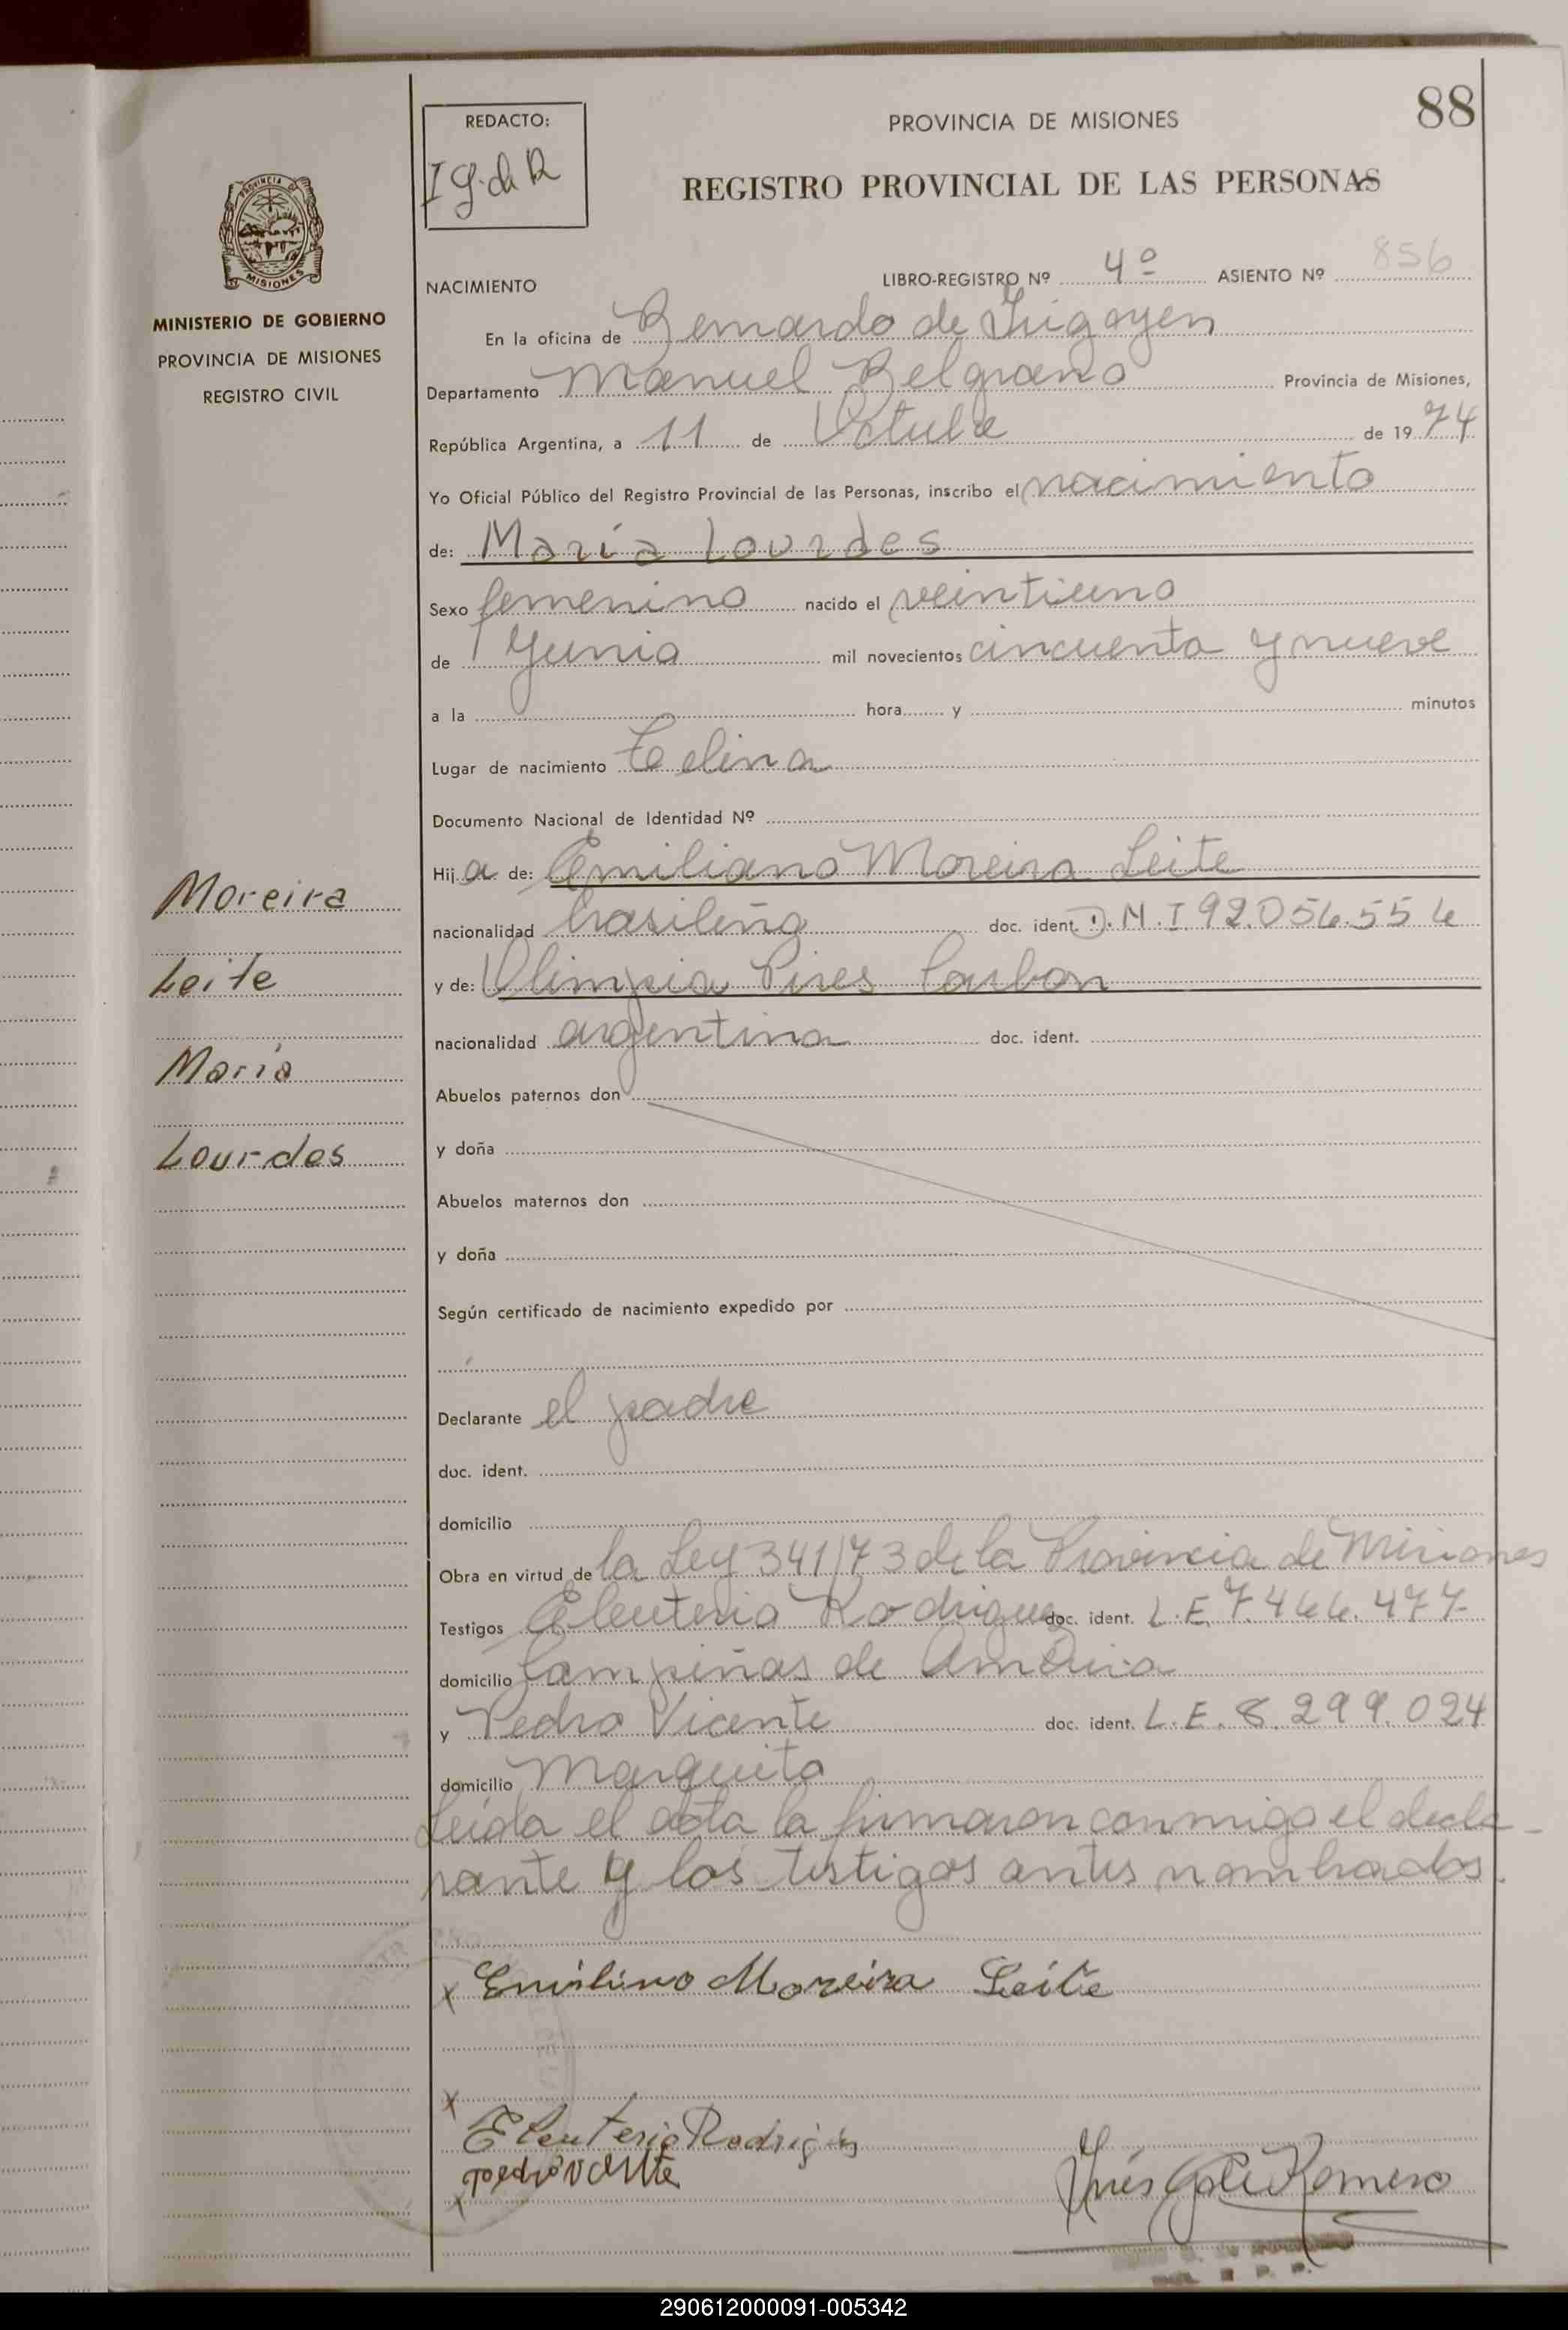 88
REDACTO:
I G. de R
PROVINCIA DE MISIONES
REGISTRO PROVINCIAL DE LAS PERSONAS
PROVINCIA DE MISIONES
MINISTERIO DE GOBIERNO
PROVINCIA DE MISIONES
REGISTRO CIVIL
NACIMIENTO LIBRO-REGISTRO Nº 4º ASIENTO Nº 856
En la oficina de Bernardo de Irigoyen
Departamento Manuel Belgrano Provincia de Misiones,
República Argentina, a 11 de Octubre de 1974
Yo Oficial Público del Registro Provincial de las Personas, inscribo el nacimiento
de: María Lourdes
Sexo femenino nacido el veintiuno
de Yunio mil novecientos cincuenta y nueve
a la hora y minutos
Lugar de nacimiento
Documento Nacional de Identidad Nº
Hija de: Emiliano Moreira Leite
nacionalidad brasileña doc. ident. D.N.I 92.056.556
y de: Olimpia Pires
nacionalidad argentina doc. ident.
Abuelos paternos don
y doña
Abuelos maternos don
y doña
Según certificado de nacimiento expedido por
Declarante el padre
doc. ident.
domicilio
Obra en virtud de la Ley 341/73 de la Provincia de Misiones
Testigos Eleuterio Rodriguez doc. ident. L.E. 7.466.477
domicilio Campiñas de América
y Pedro Vicente doc. ident. L.E. 8.299.024
domicilio Marquita
Leída el acta la firmaron conmigo el decla-
rante y los testigos antes nombrados.
Moreira
Leite
María
Lourdes
x Emiliano Moreira Leite
x
Eleuterio Rodrigues
Pedro Vicente
x
Inés G. de Romero
290612000091-005342